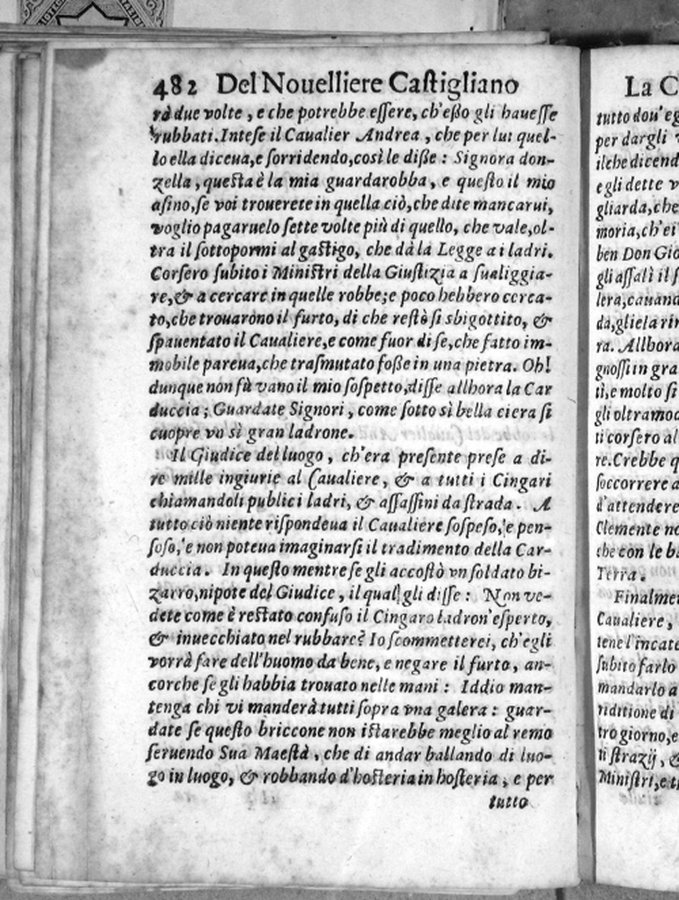 482 Del Nouelliere Castigliano
rà due volte, e che potrebbe eſſere, ch'eßo gli haueſſe
rubbati. Inteſe il Caualier Andrea, che per lui quel-
lo ella diceua, e ſorridendo, così le diße: Signora don-
zella, queſta è la mia guardarobba, e queſto il mio
aſino, ſe voi trouerete in quella ciò, che dite mancarui,
voglio pagaruelo ſette volte più di quello, che vale, ol-
tra il ſottopormi al gaſtigo, che dà la Legge a i ladri.
Corſero ſubito i Miniſtri della Giuſtizia a ſualiggia-
re, & a cercare in quelle robbe; e poco hebbero cerca-
to, che trouarono il furto, di che reſtò ſi sbigottito, &
ſpauentato il Caualiere, e come fuor di ſe, che fatto im-
mobile pareua, che traſmutato foße in una pietra. Oh!
dunque non fù vano il mio ſoſpetto, diſſe allhora la Car
duccia; Guardate Signori, come ſotto sì bella ciera ſi
cuopre vo sì gran ladrone.
Il Giudice del luogo, ch'era preſente preſe a di-
re mille ingiurie al Caualiere, & a tutti i Cingari
chiamandoli publici ladri, & aſſaſſini da ſtrada. A
tutto ciò niente riſpondeua il Caualiere ſoſpeſo, e pen-
ſoſo, e non poteua imaginarſi il tradimento della Car-
duccia. In queſto mentre ſe gli accoſtò vn ſoldato bi-
zarro, nipote del Giudice, il qual gli diſſe: Non ve-
dete come è reſtato confuſo il Cingaro ladron' eſperto,
& inuecchiato nel rubbare? Io ſcommetterei, ch'egli
vorrà fare dell'huomo da bene, e negare il furto, an-
corche ſe gli habbia trouato nelle mani: Iddio man-
tenga chi vi manderà tutti ſopra vna galera: guar-
date ſe queſto briccone non iſtarebbe meglio al remo
ſeruendo Sua Maeſtà, che di andar ballando di luo-
go in luogo, & robbando d'hoſteria in hoſteria, e per
tutto
La C
tutto dou'eg
per dargli
ilche dicend
egli dette v
gliarda, che
moria, ch'ei
ben Don Gio
gli aſſalì il f
lera, cauand
da, gliela rin
ra. Allhora
gnoſſi in gra
tì, e molto ſi
gli oltramod
ti corſero al
re. Crebbe q
ſoccorrere a
d'attendere
Clemente no
che con le b
Terra.
Finalmet
Caualiere,
tene l'incate
ſubito farlo
mandarlo a
riditione di
tro giorno, e
li ſtrazij, &
Miniſtri, e t